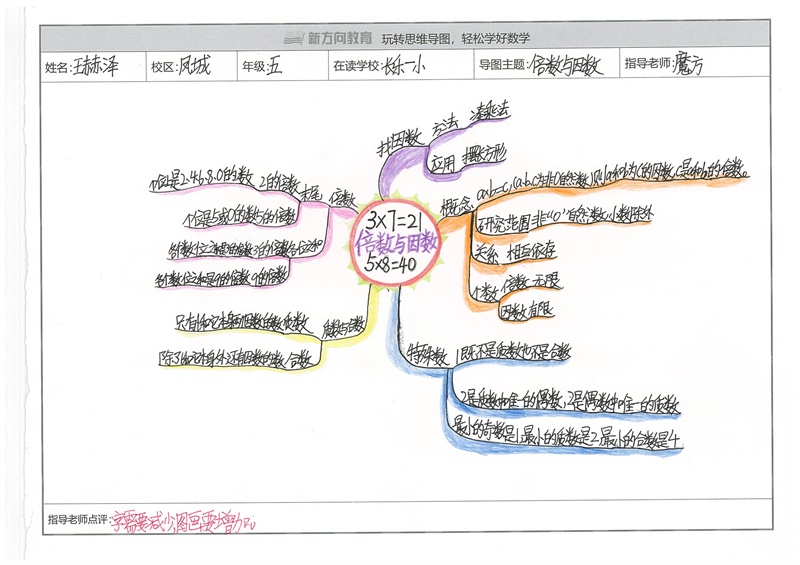 新方向教育 玩转思维导图，轻松学好数学
姓名：王赫泽 校区：凤城 年级：五 在读学校：长乐一小 导图主题：倍数与因数 指导老师：魔方
3×7=21
倍数与因数
5×8=40
找因数
方法 凑乘法
应用 摆长方形
概念
a×b=c,(a,b,c为非0自然数)则a和b为c的因数,c是a和b的倍数。
研究范围:非"0"自然数,小数除外
关系 相互依存
个数 倍数 无限
因数 有限
特殊数
1既不是质数也不是合数
2是质数中唯一的偶数,2是偶数中唯一的质数
最小的奇数是1,最小的质数是2,最小的合数是4
质数与合数
只有1和它本身两个因数的数 质数
除了1和它本身外还有因数的数 合数
倍数
个位是2.4.6.8.0的数 2的倍数
个位是5或0的数 5的倍数
各个数位之和是9的倍数 9的倍数
指导老师点评：字需要减少,图画要增加